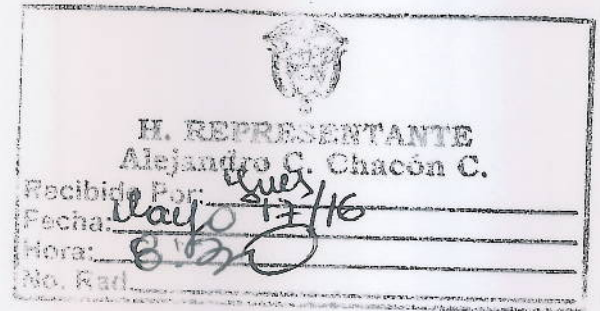 H. REPRESENTANTE
Alejandro C. Chacón C.
Recibido Por:
Fecha: Mayo 17/16
Hora:
No. Rad